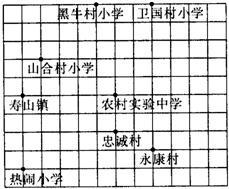 黑牛村小学 卫国村小学
山合村小学
寿山镇 农村实验中学
忠诚村
永康村
热闹小学